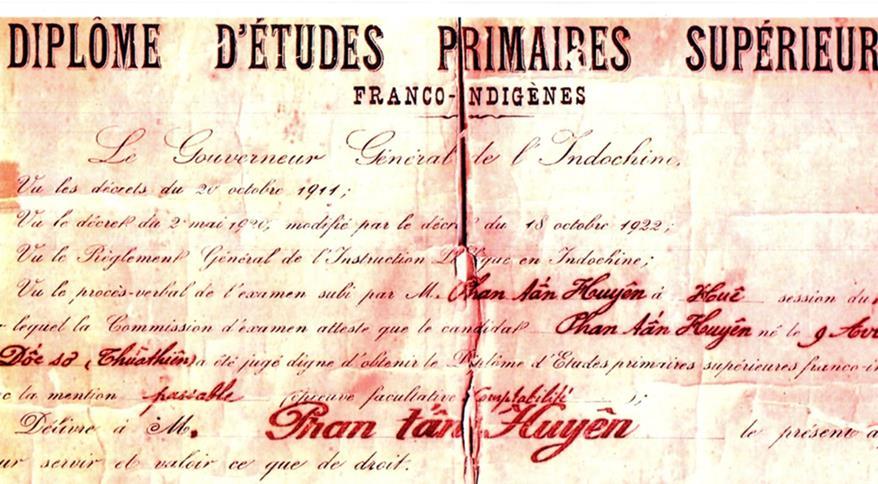 DIPLÔME D'ÉTUDES PRIMAIRES SUPÉRIEUR
FRANCO-INDIGÈNES
Le Gouverneur Général de l'Indochine,
Vu les décrets du 20 octobre 1911;
Vu le décret du 2 mai 1920, modifié par le décret du 18 octobre 1922;
Vu le Règlement Général de l'Instruction en Indochine;
Vu le procès-verbal de l'examen subi par M. Phan tấn Huyên à Huê session du
lequel la Commission d'examen atteste que le candidat Phan tấn Huyên né le 9 Avr
Dốc sơ (Thừathiên) a été jugé digne d'obtenir le Diplôme d'Etudes primaires supérieures franco-in
la mention passable (épreuve facultative Comptabilité );
Délivre à M. Phan tấn Huyên le présent
ur servir et valoir ce que de droit.